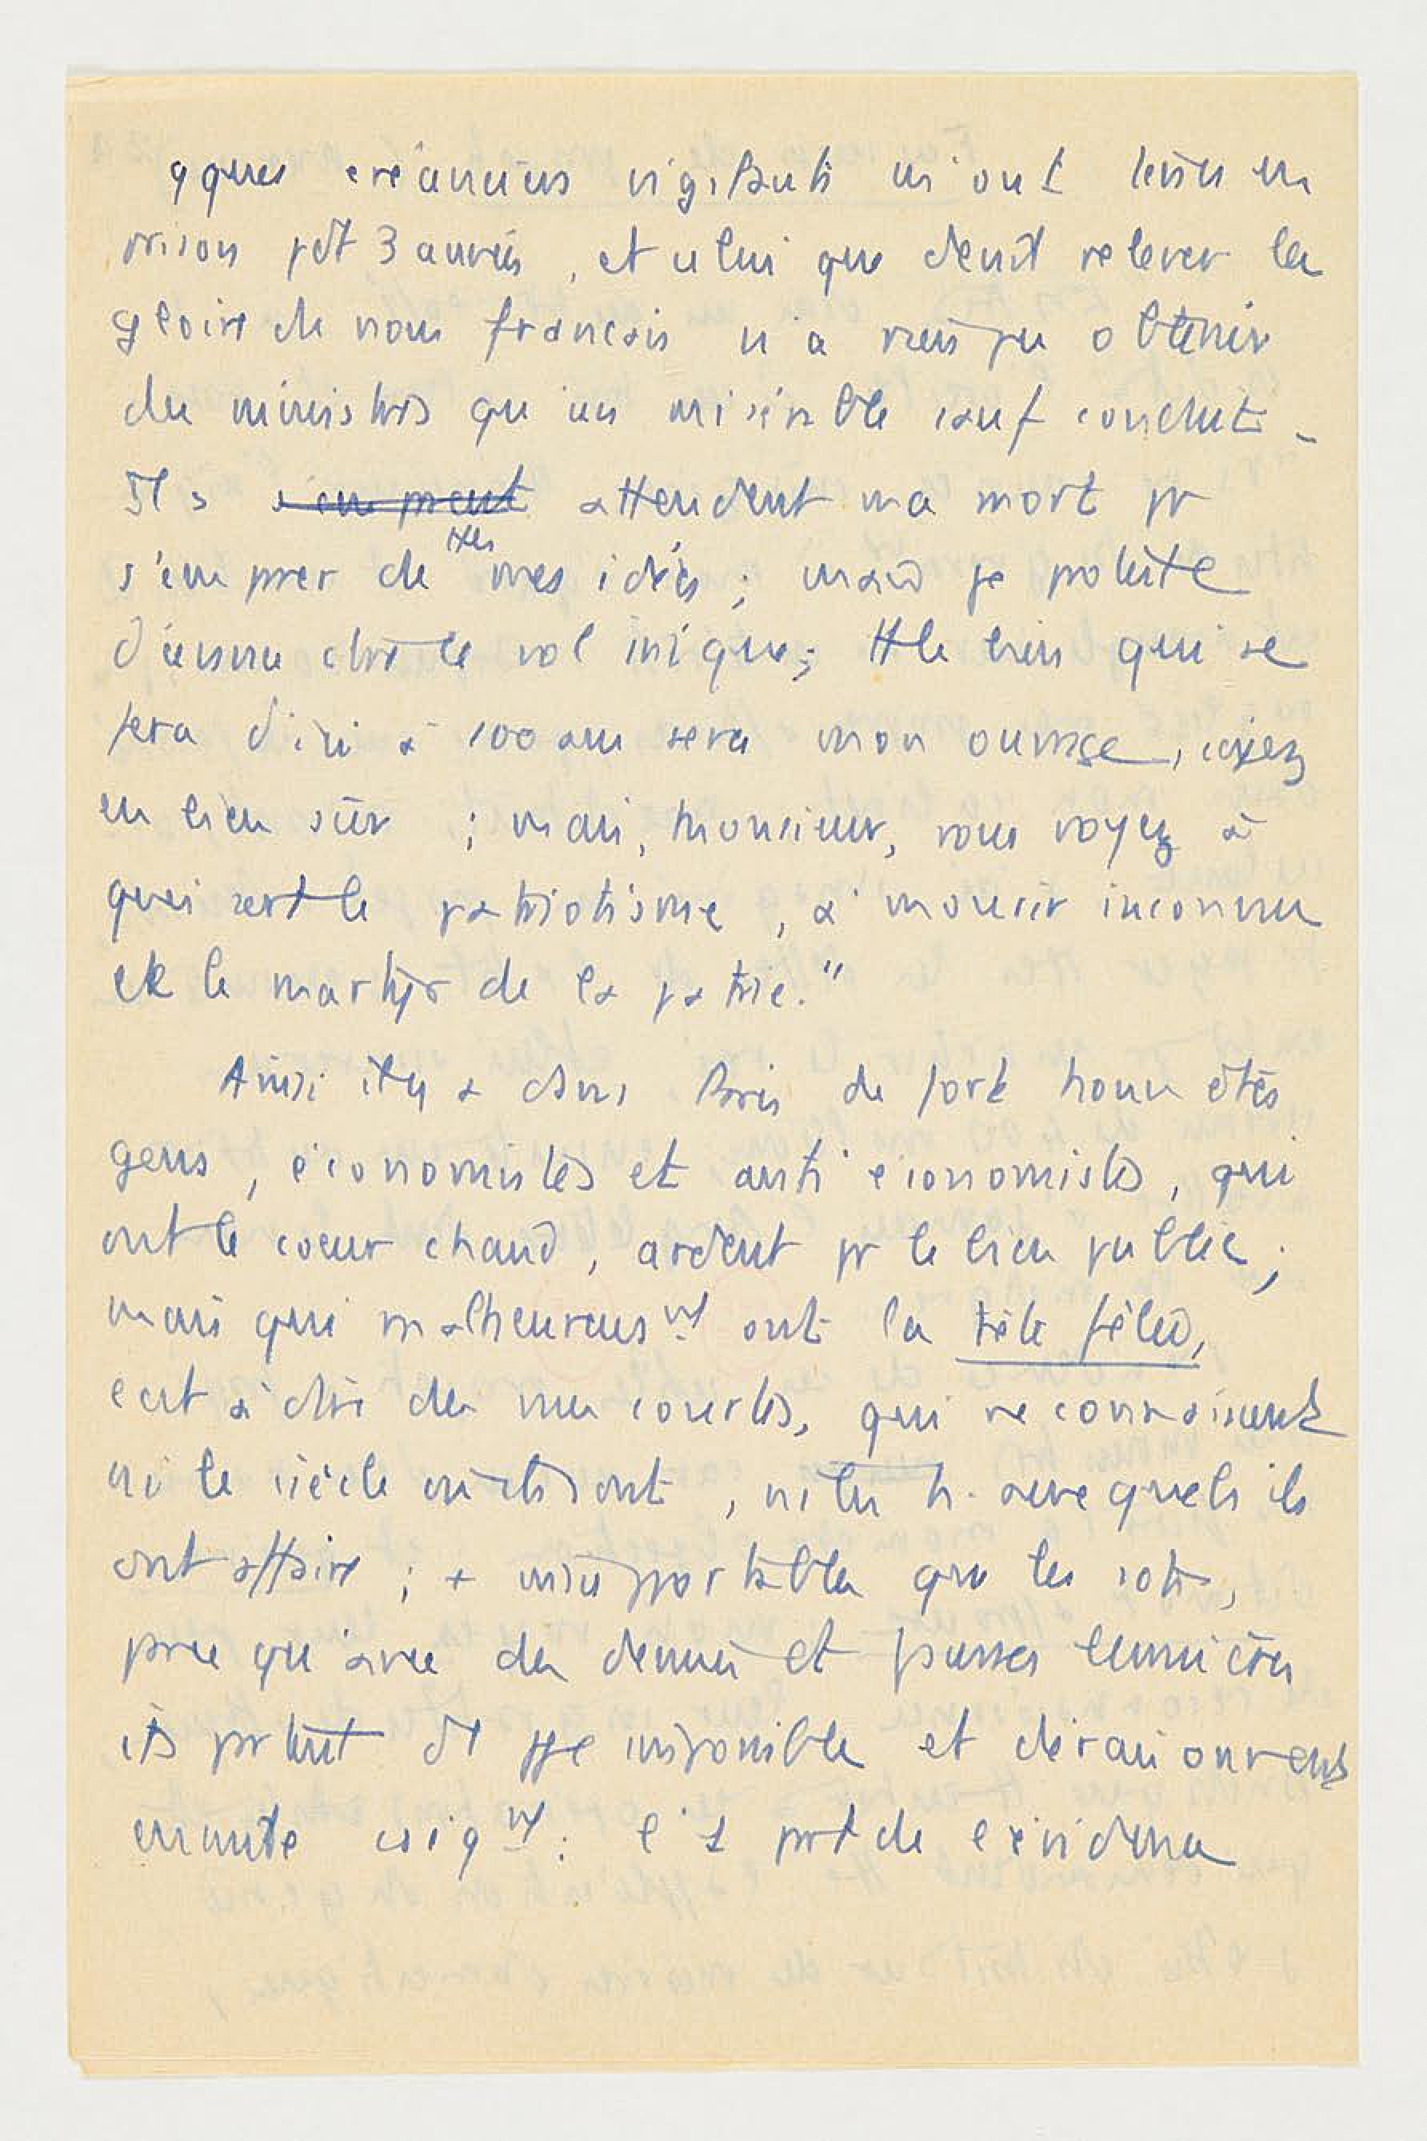 qques créanciers vigilants m'ont tenu en
prison pdt 3 années, et celui qui devait relever la
gloire du nom français n'a rien pu obtenir
des ministres qu'un misérable sauf conduit.
Ils attendent ma mort pr
s'emparer de ttes mes idées ; mais je proteste
d'avance ctre le vol inique ; tt le bien qui se
fera d'ici à 100 ans sera mon ouvrage, soyez
en bien sûr ; mais, monsieur, vous voyez à
quoi sert le patriotisme, à mourir inconnu
et le martyr de la patrie."
Ainsi il y a dans Paris de fort honnêtes
gens, économistes et anti économistes, qui
ont le coeur chaud, ardent pr le bien public ;
mais qui malheureusmt ont la tête fêlée,
c'est à dire des vues courtes, qui ne connaissent
ni le siècle où ils sont, ni les h. avec quels ils
ont affaire ; + insupportables que les sots,
parce qu'avec des demies et fausses lumières
ils partent d'1 ppe impossible et déraisonnent
ensuite